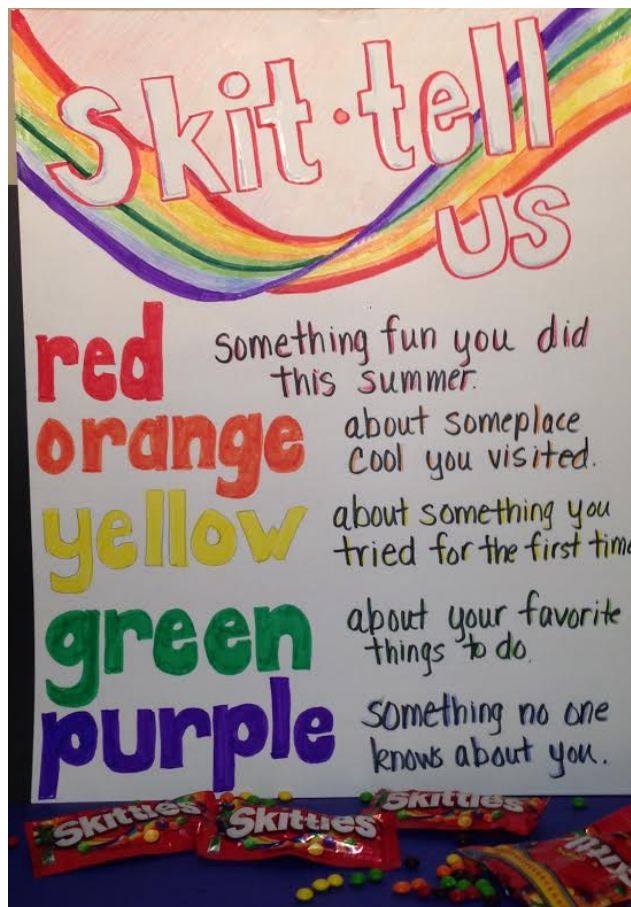 Skit·tell
us
red something fun you did
this summer.
orange about someplace
cool you visited.
yellow about something you
tried for the first time
green about your favorite
things to do.
purple something no one
knows about you.
Skittles
Skittles
Skittles